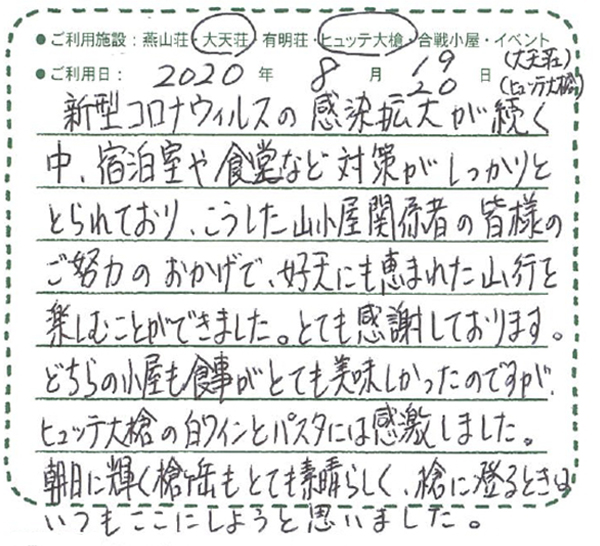 ●ご利用施設：燕山荘・大天荘・有明荘・ヒュッテ大槍・合戦小屋・イベント
●ご利用日：2020年 8月 19日(大天荘)
20(ヒュッテ大槍)
新型コロナウィルスの感染拡大が続く
中、宿泊室や食堂など対策がしっかりと
とられており、こうした山小屋関係者の皆様の
ご努力のおかげで、好天にも恵まれた山行を
楽しむことができました。とても感謝しております。
どちらの小屋も食事がとても美味しかったのですが、
ヒュッテ大槍の白ワインとパスタには感激しました。
朝日に輝く槍ヶ岳もとても素晴らしく、槍に登るときは
いつもここにしようと思いました。